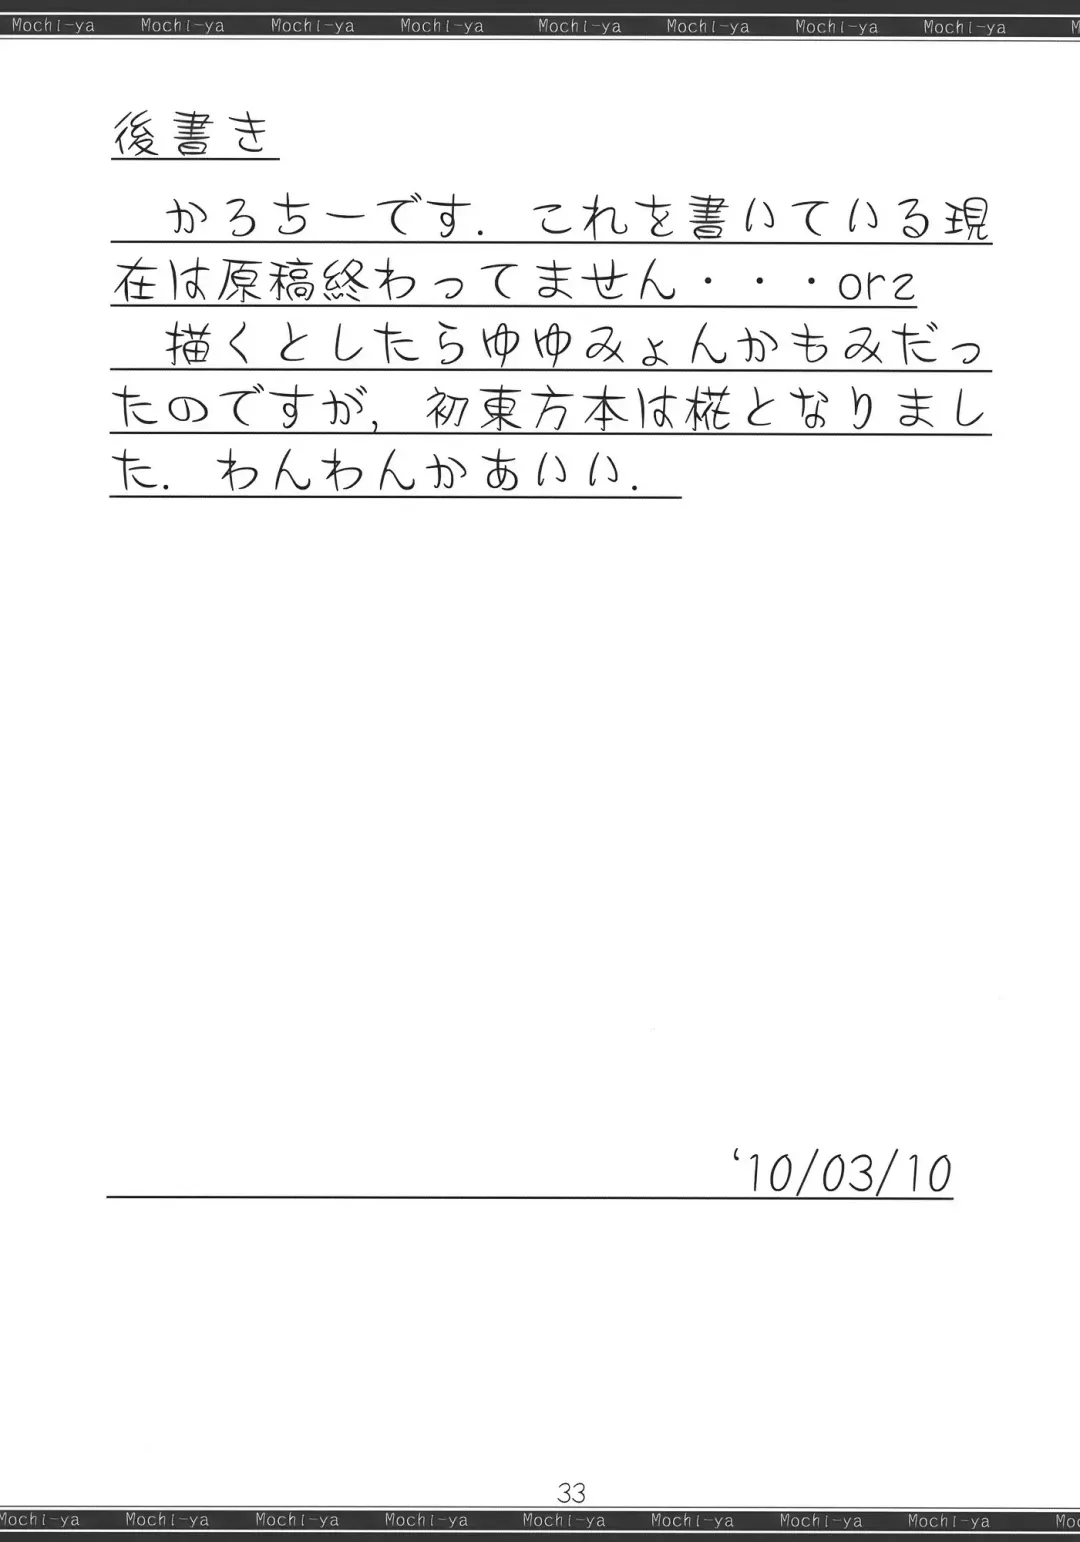 Mochi-ya Mochi-ya Mochi-ya Mochi-ya Mochi-ya Mochi-ya Mochi-ya Mochi-ya M
後書き
かろちーです．これを書いている現
在は原稿終わってません・・・orz
描くとしたらゆゆみょんかもみだっ
たのですが，初東方本は椛となりまし
た．わんわんかあいい．
‘10/03/10
33
Mochi-ya Mochi-ya Mochi-ya Mochi-ya Mochi-ya Mochi-ya Mochi-ya Mochi-ya Mo